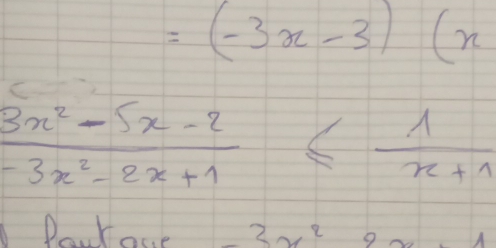 = (-3x - 3) (x
3x² - 5x - 2 / -3x² - 2x + 1 ≤ 1 / x + 1
Faut que -3x² 2x + 1